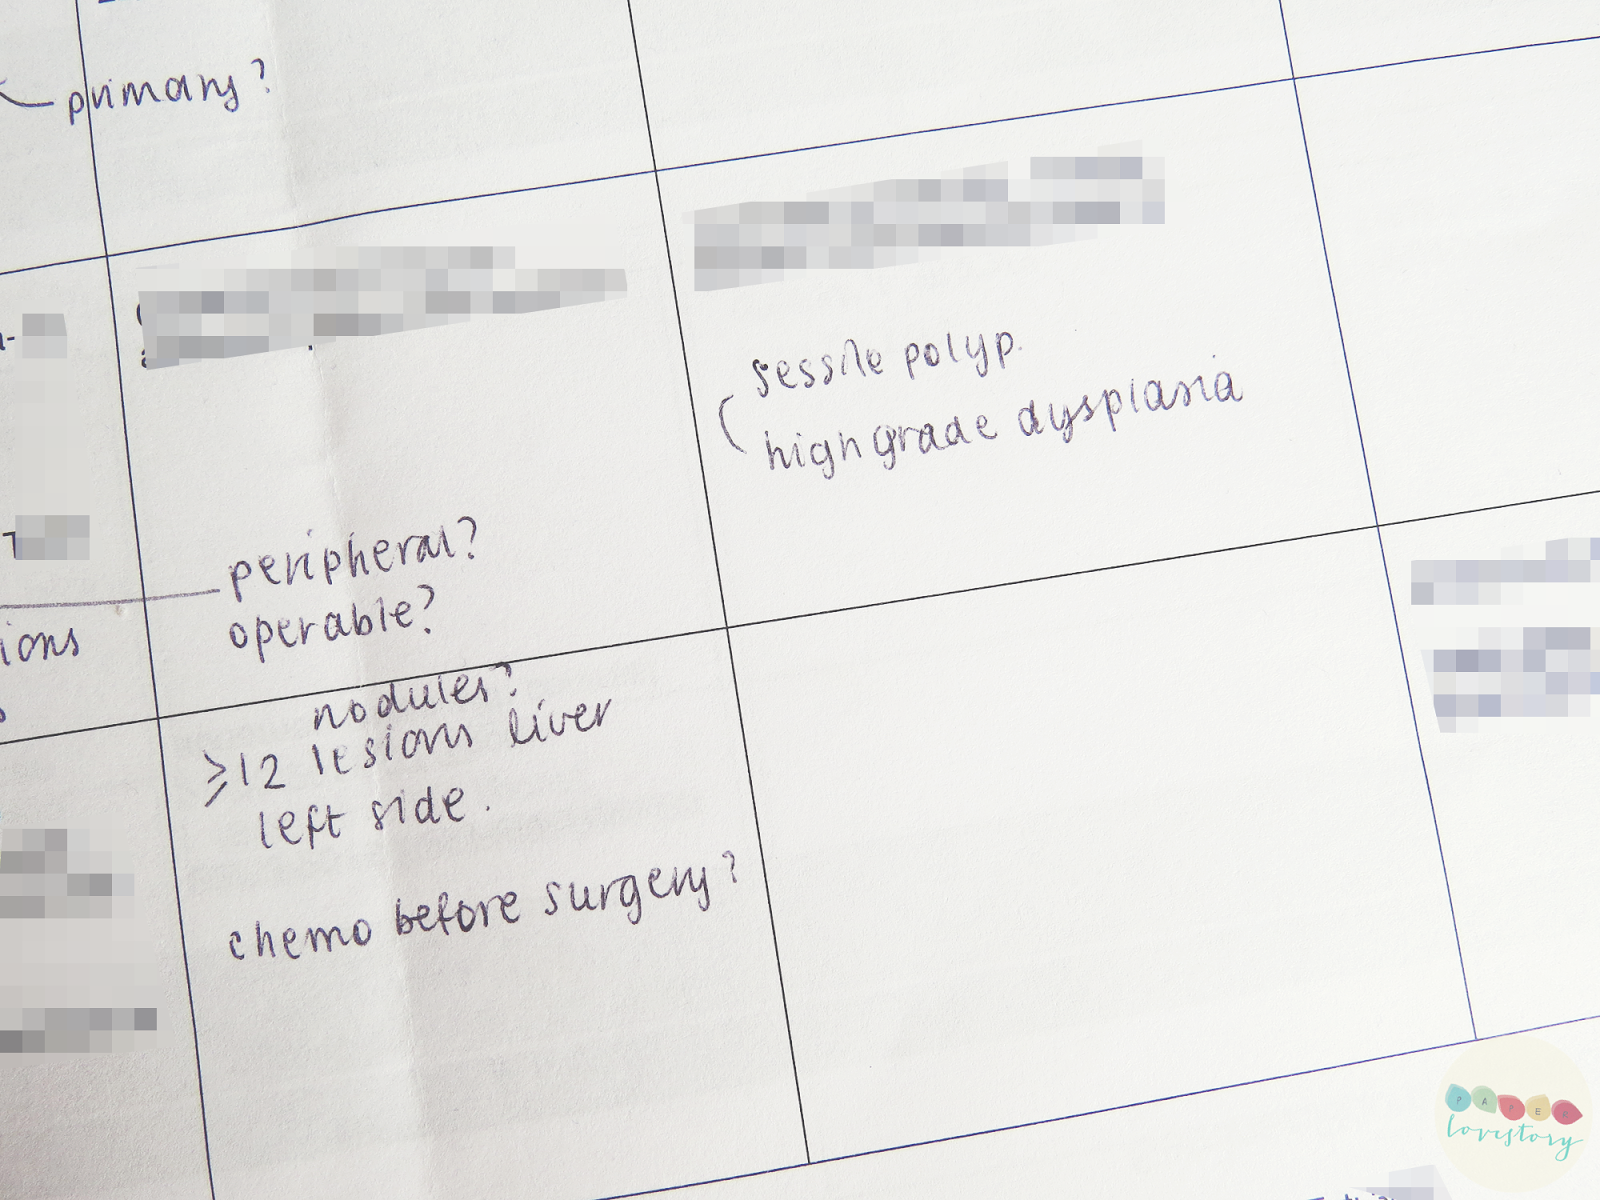 primary?
sessile polyp.
high grade dysplasia
peripheral?
operable?
ions
nodules?
≥12 lesions liver
left side.
chemo before surgery?
PAPER
lovestory